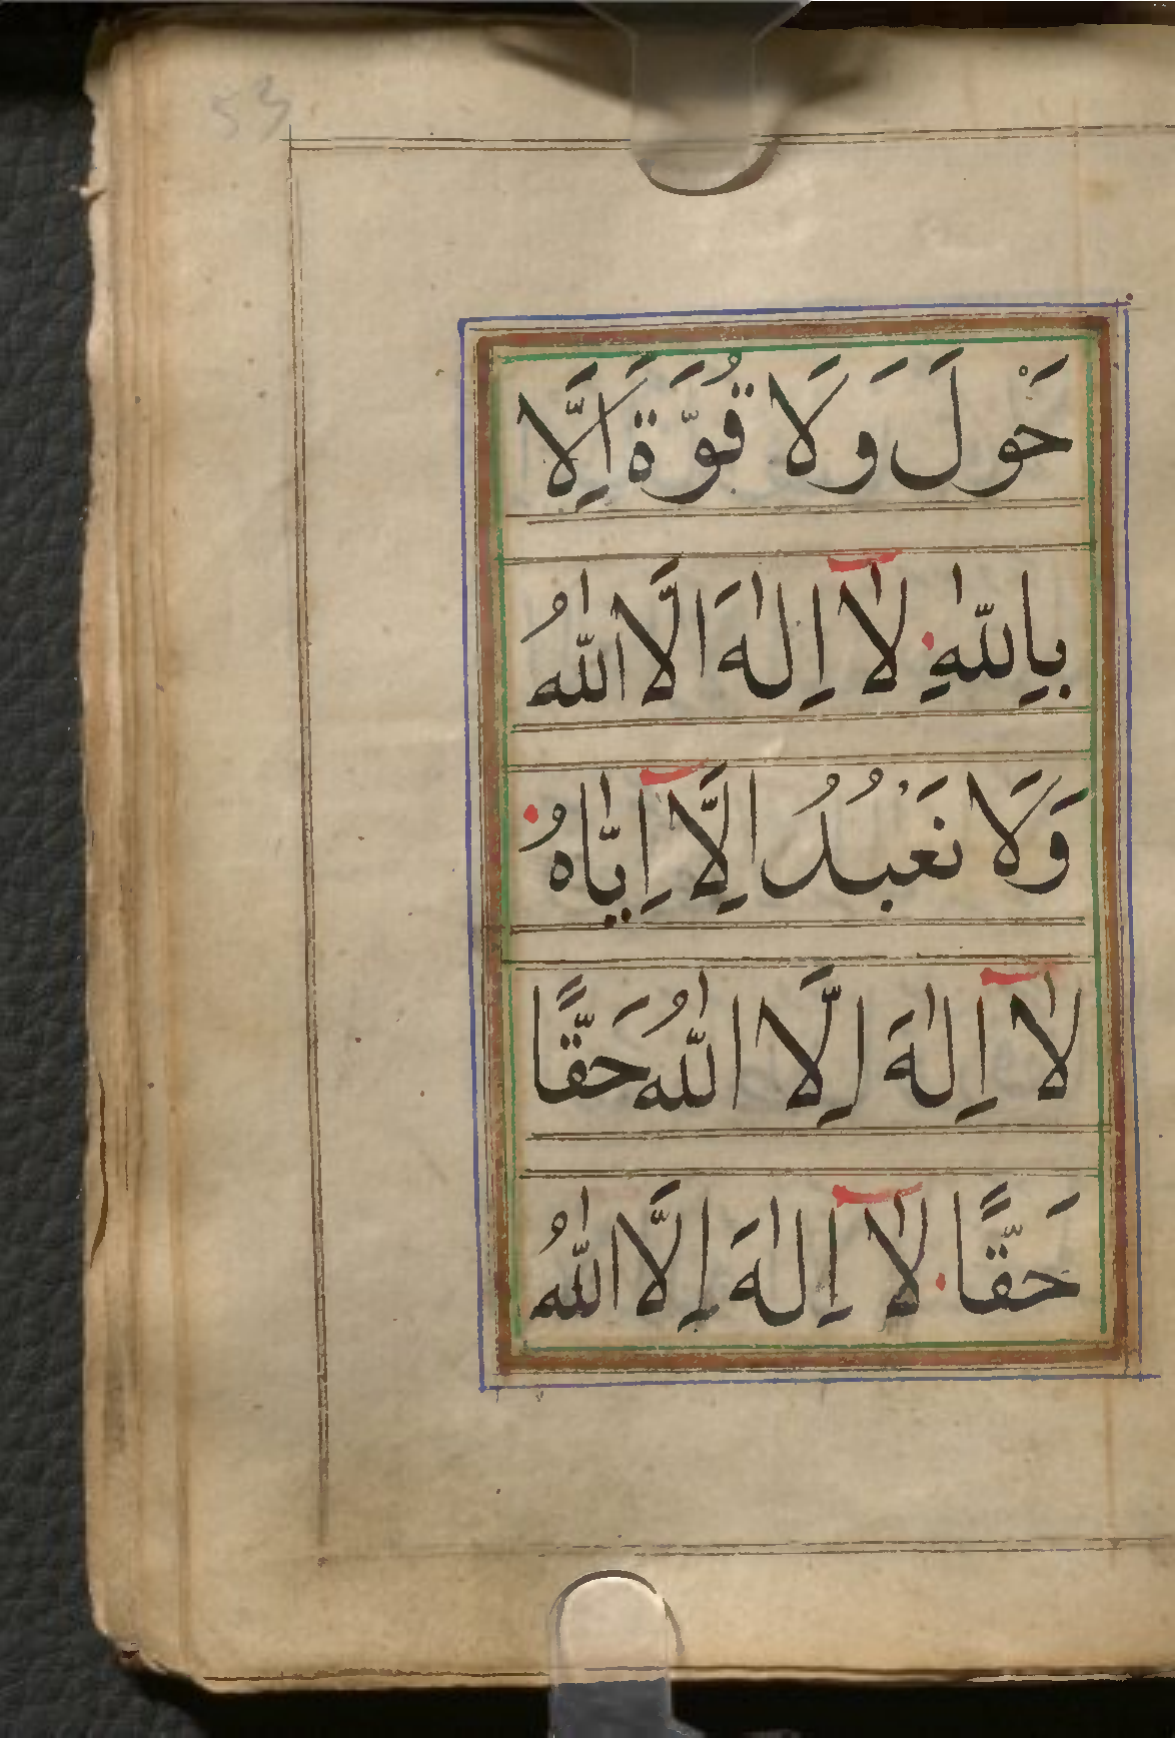 53
حَوْلَ وَلَا قُوَّةَ اِلَّا
بِاللّٰهِ لَا اِلٰهَ الَّا اللّٰهُ
وَلَا نَعْبُدُ الَّا اِيَّاهُ
لَا اِلٰهَ اِلَّا اللّٰهُ حَقًّا
حَقًّا لَا اِلٰهَ اِلَّا اللّٰهُ